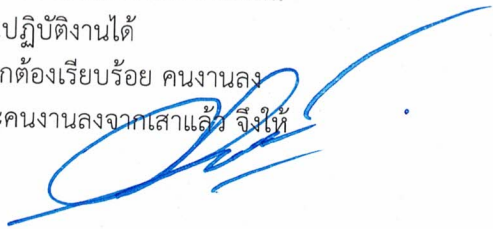 ปฏิบัติงานได้
กต้องเรียบร้อย คนงานลง
ะคนงานลงจากเสาแล้ว จึงให้